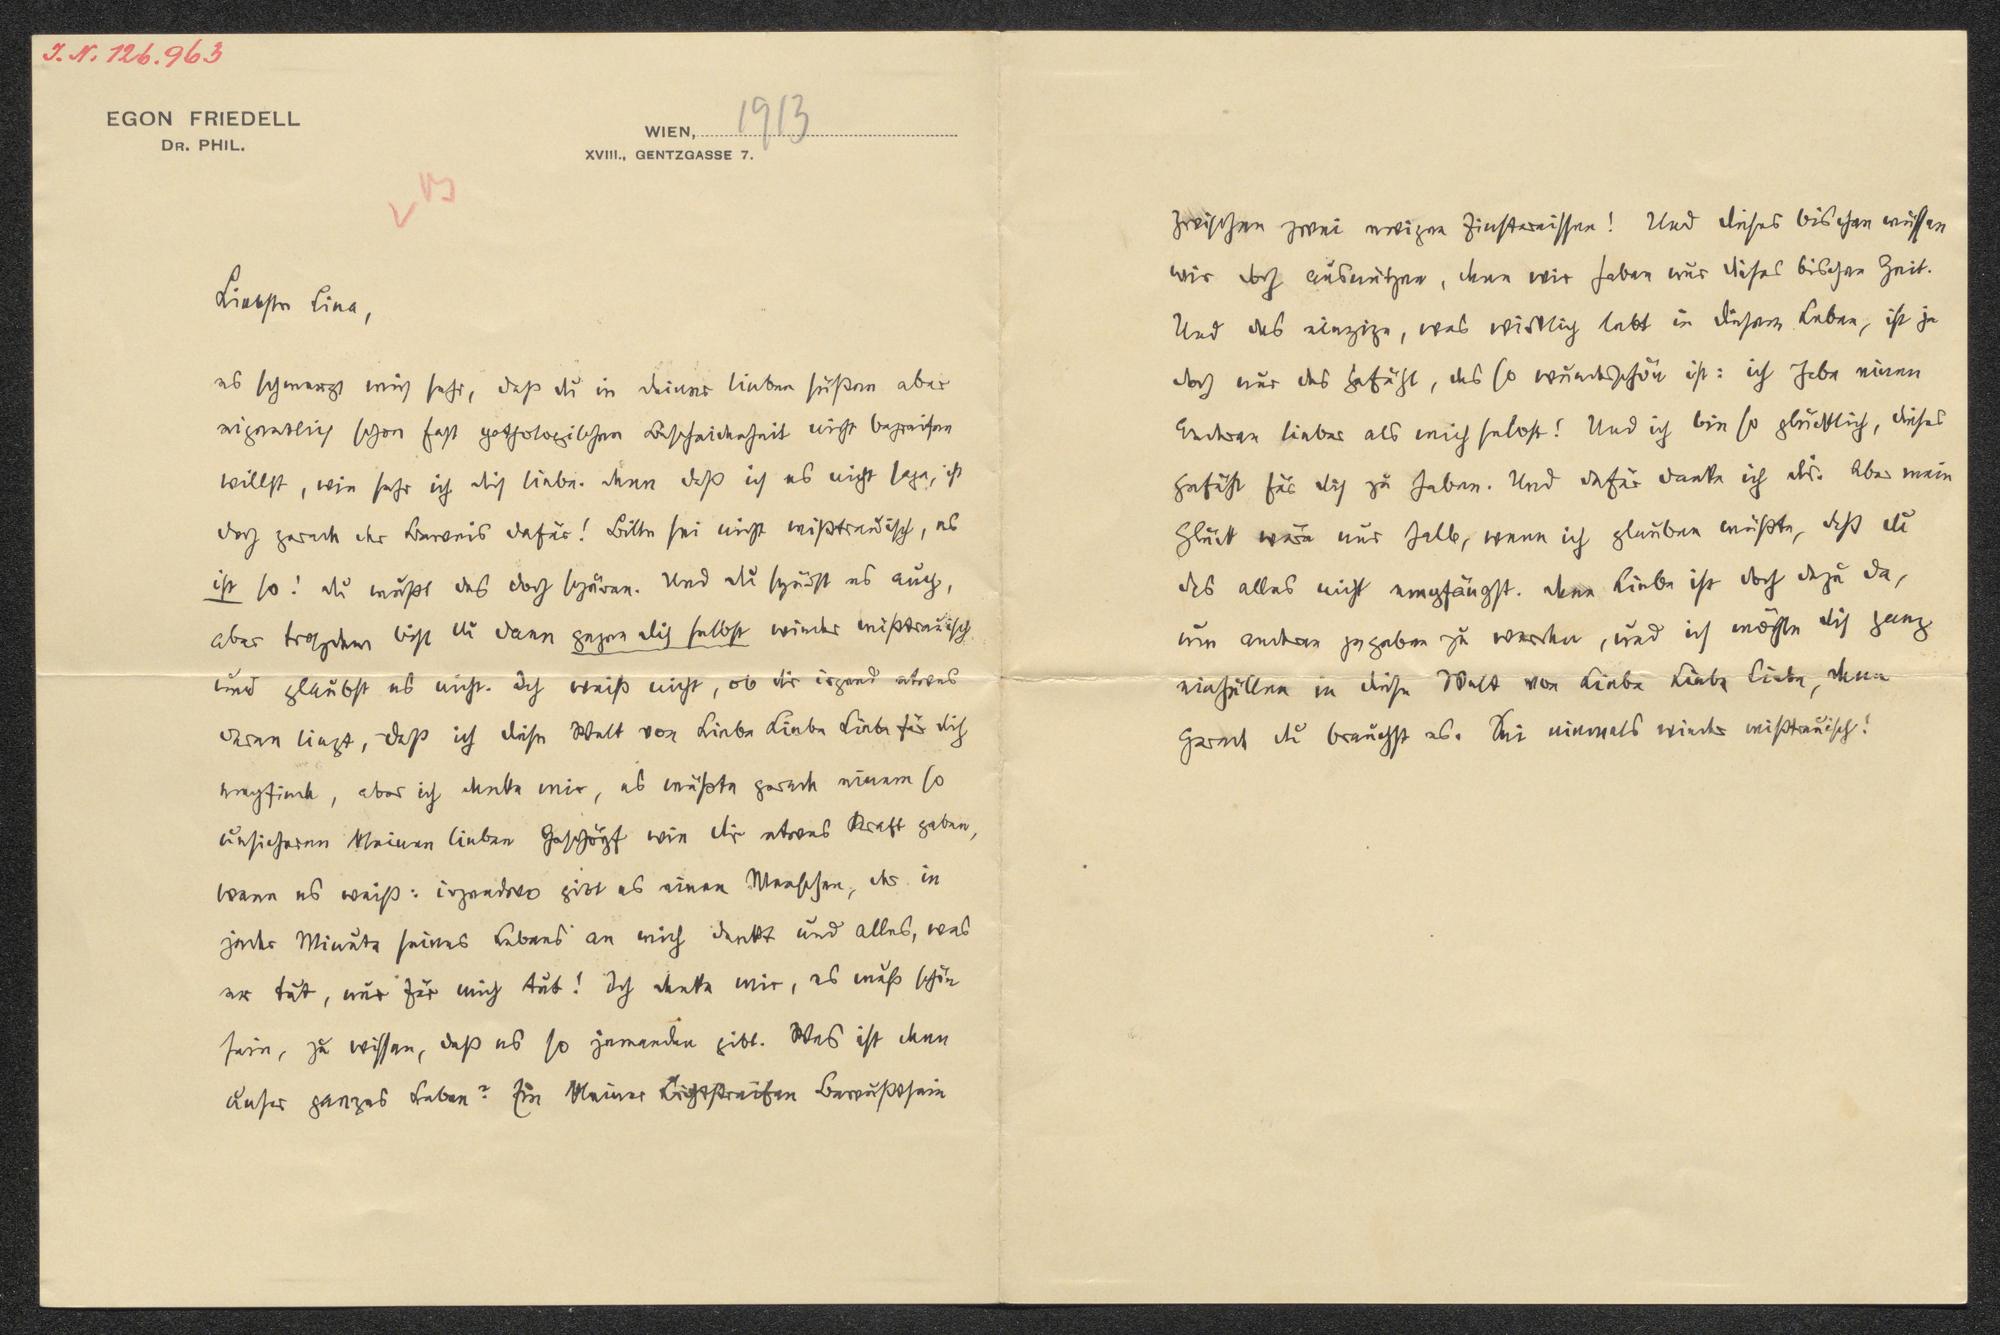 I. N. 126.963
EGON FRIEDELL
DR. PHIL.
WIEN, 1913
XVIII., GENTZGASSE 7.
Liebste Lina,
es schmerzt mich sehr, daß du in deiner lieben süßen aber
eigentlich schon fast pathologischen Bescheidenheit nicht begreifen
willst, wie sehr ich dich liebe. Denn daß ich es nicht sage, ist
doch gerade der Beweis dafür! Bitte sei nicht mißtrauisch, es
ist so! Du mußt das doch spüren. Und du spürst es auch,
aber trotzdem bist du dann gegen dich selbst wieder mißtrauisch
und glaubst es nicht. Ich weiß nicht, ob dir irgend etwas
daran liegt, daß ich diese Welt von Liebe Liebe Liebe für dich
empfinde, aber ich denke mir, es müßte gerade einem so
unsicheren kleinen lieben Geschöpf wie dir etwas Kraft geben,
wenn es weiß: irgendwo gibt es einen Menschen, der in
jeder Minute seines Lebens an mich denkt und alles, was
er tut, nur für mich tut! Ich denke mir, es muß schön
sein, zu wissen, daß es so jemanden gibt. Was ist denn
unser ganzes Leben? Ein kleiner Lichtstreifen Bewußtsein
zwischen zwei ewigen Finsternissen! Und dieses bischen müssen
wir doch ausnützen, denn wir haben nur dieses bischen Zeit.
Und das einzige, was wirklich lebt in diesem Leben, ist ja
doch nur das Gefühl, das so wunderschön ist: ich habe einen
Anderen lieber als mich selbst! Und ich bin so glücklich, dieses
Gefühl für dich zu haben. Und dafür danke ich dir. Aber mein
Glück wäre nur halb, wenn ich glauben müßte, daß du
das alles nicht empfängst. Denn Liebe ist doch dazu da,
um anderen gegeben zu werden, und ich möchte dich ganz
einhüllen in diese Welt von Liebe Liebe Liebe, denn
gerade du brauchst es. Sei niemals wieder mißtrauisch!